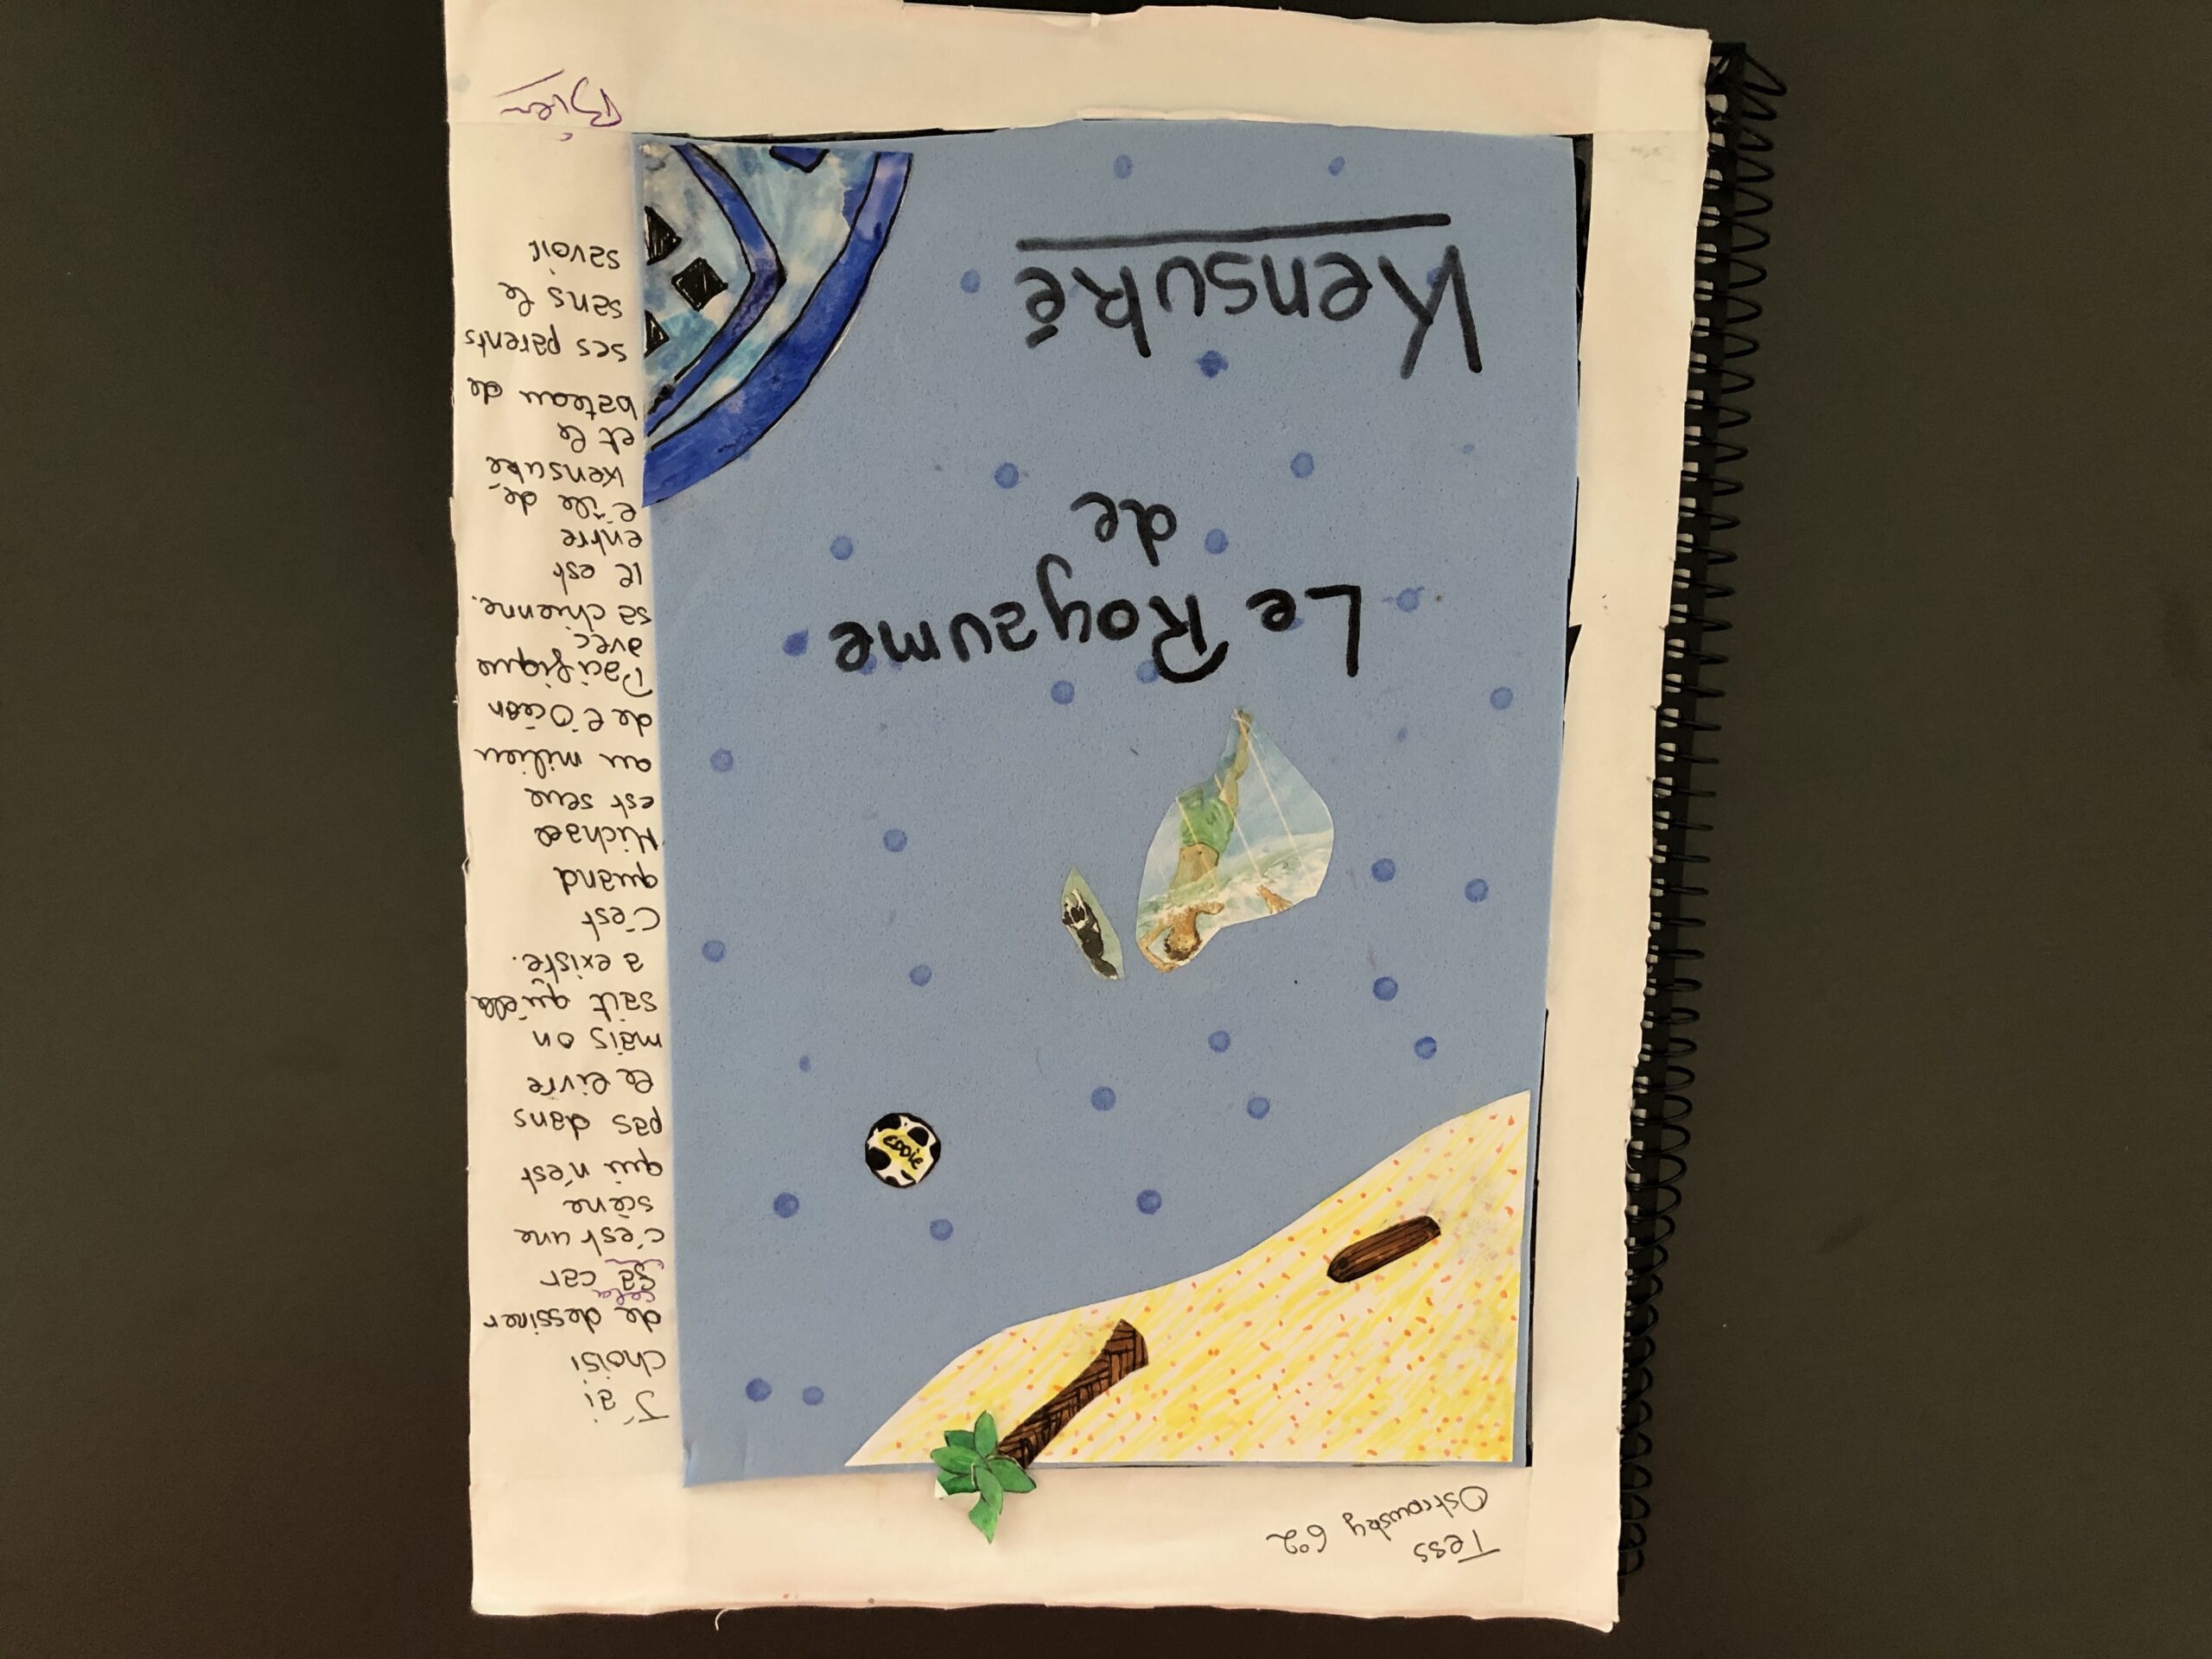 Tess
Ostrowsky 6°2
EDDIE
Le Royaume
de
Kensuké
J'ai
choisi
de dessiner
cela
ça car
c'est une
scène
qui n'est
pas dans
le livre
mais on
sait qu'elle
a existé.
C'est
quand
Michael
est seul
au milieu
de l'Océan
Pacifique
avec
sa chienne.
Il est
entre
l'île de
Kensuké
et le
bateau de
ses parents
sans le
savoir
Bien